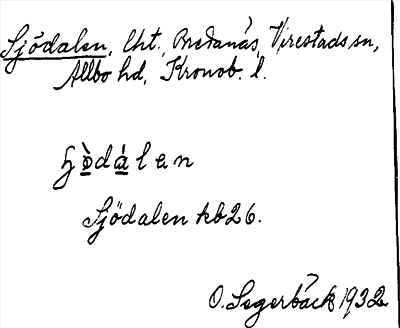 Sjödalen, lht., Bredanäs, Virestads sn,
Allbo hd, Kronob. l.
ɧö̀dálen
Sjödalen kb 26.
O. Segerbäck 1932